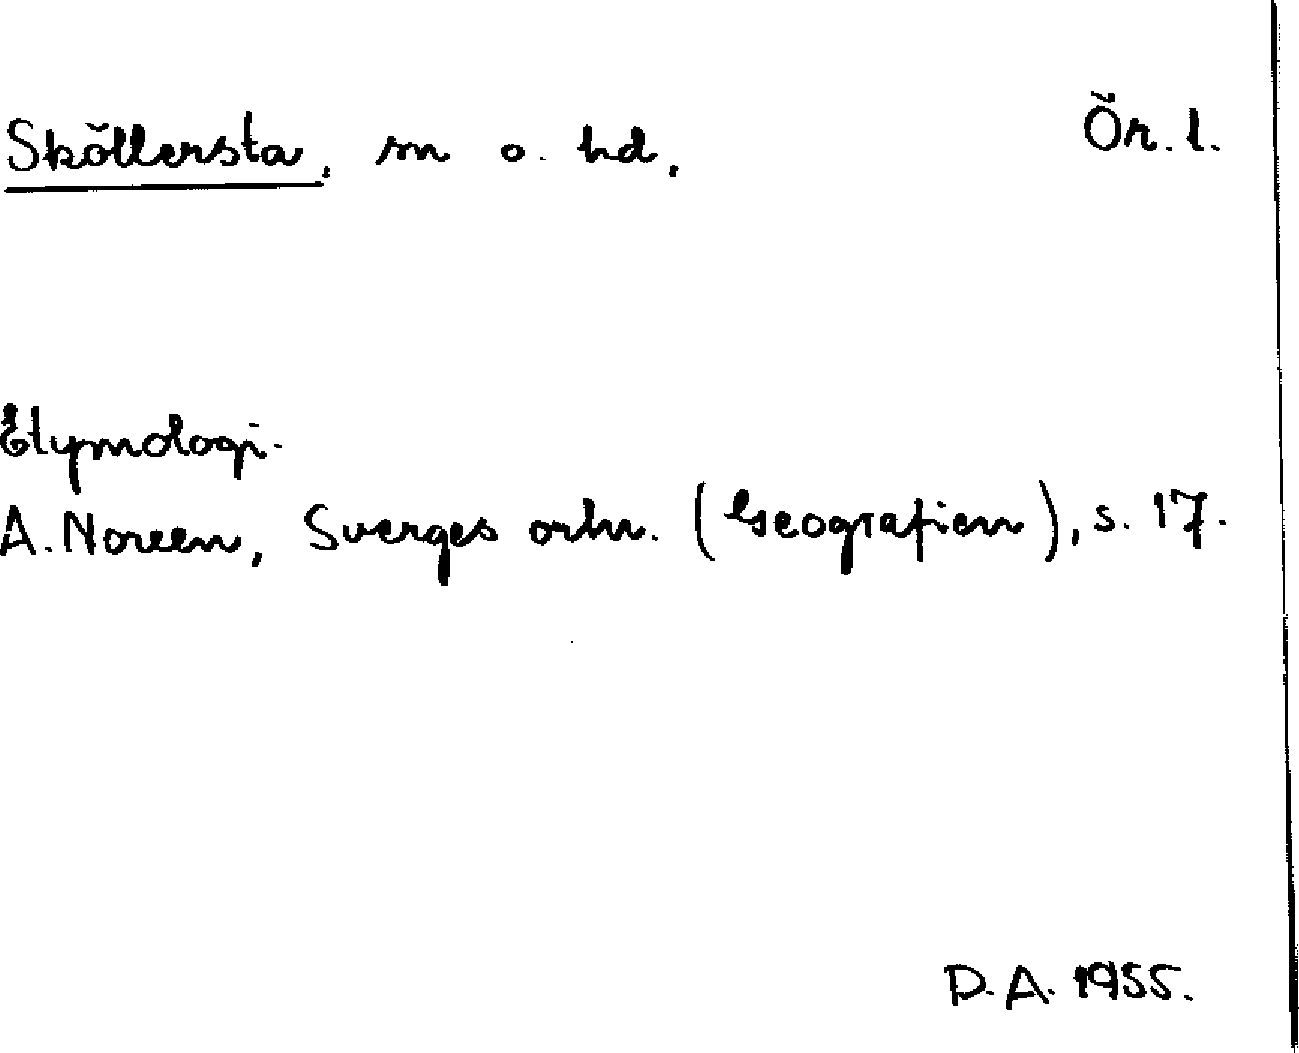 Sköllersta, sn o. hd,
Ör. l.
Etymologi.
A. Noreen, Sverges ortn. (Geografien), s. 17.
D. A. 1955.